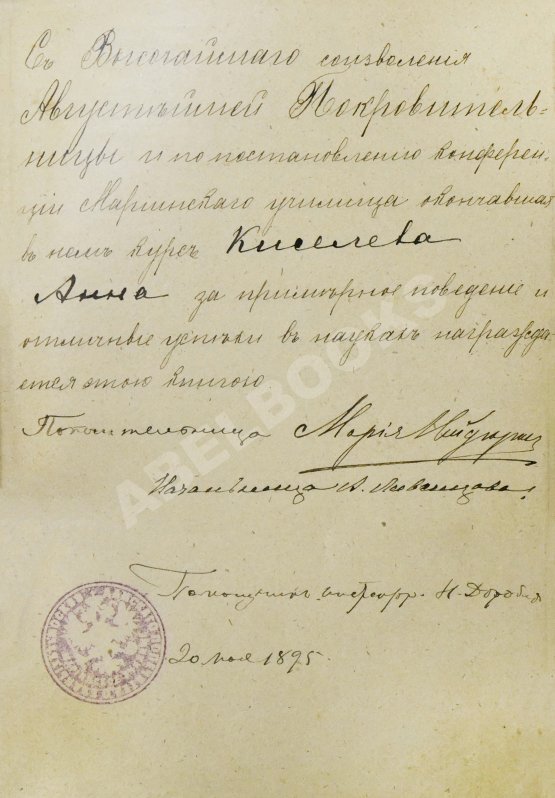 Съ Высочайшаго соизволенія
Августѣйшей Покровитель=
ницы и по постановленію конферен-
ціи Маріинскаго училища окончавшая
въ немъ курсъ Киселева
Анна за примѣрное поведеніе и
отличные успѣхи въ наукахъ награжда-
ется этою книгою.
Попечительница Марія
Начальница А.
Помощникъ Н.
20 мая 1895.
ABELBOOKS